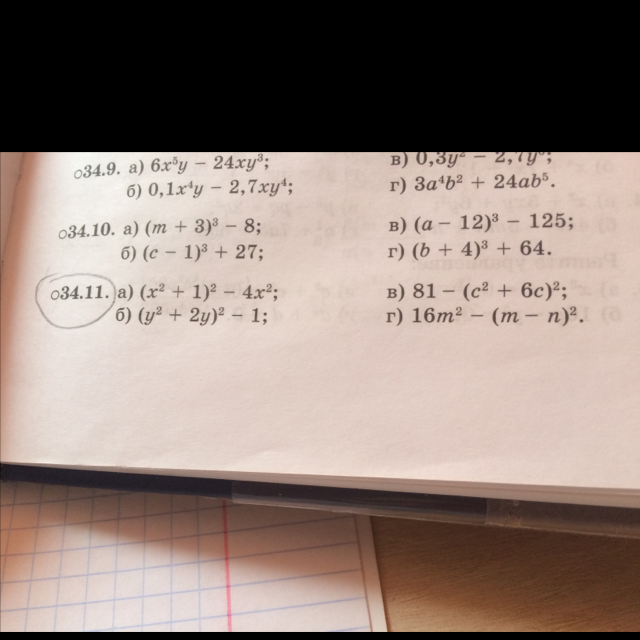 034.9. а) 6x⁵y − 24xy³;
б) 0,1x⁴y − 2,7xy⁴;
в) 0,3y² − 2,7y⁶;
г) 3a⁴b² + 24ab⁵.
034.10. а) (m + 3)³ − 8;
б) (c − 1)³ + 27;
в) (a − 12)³ − 125;
г) (b + 4)³ + 64.
034.11. а) (x² + 1)² − 4x²;
б) (y² + 2y)² − 1;
в) 81 − (c² + 6c)²;
г) 16m² − (m − n)².